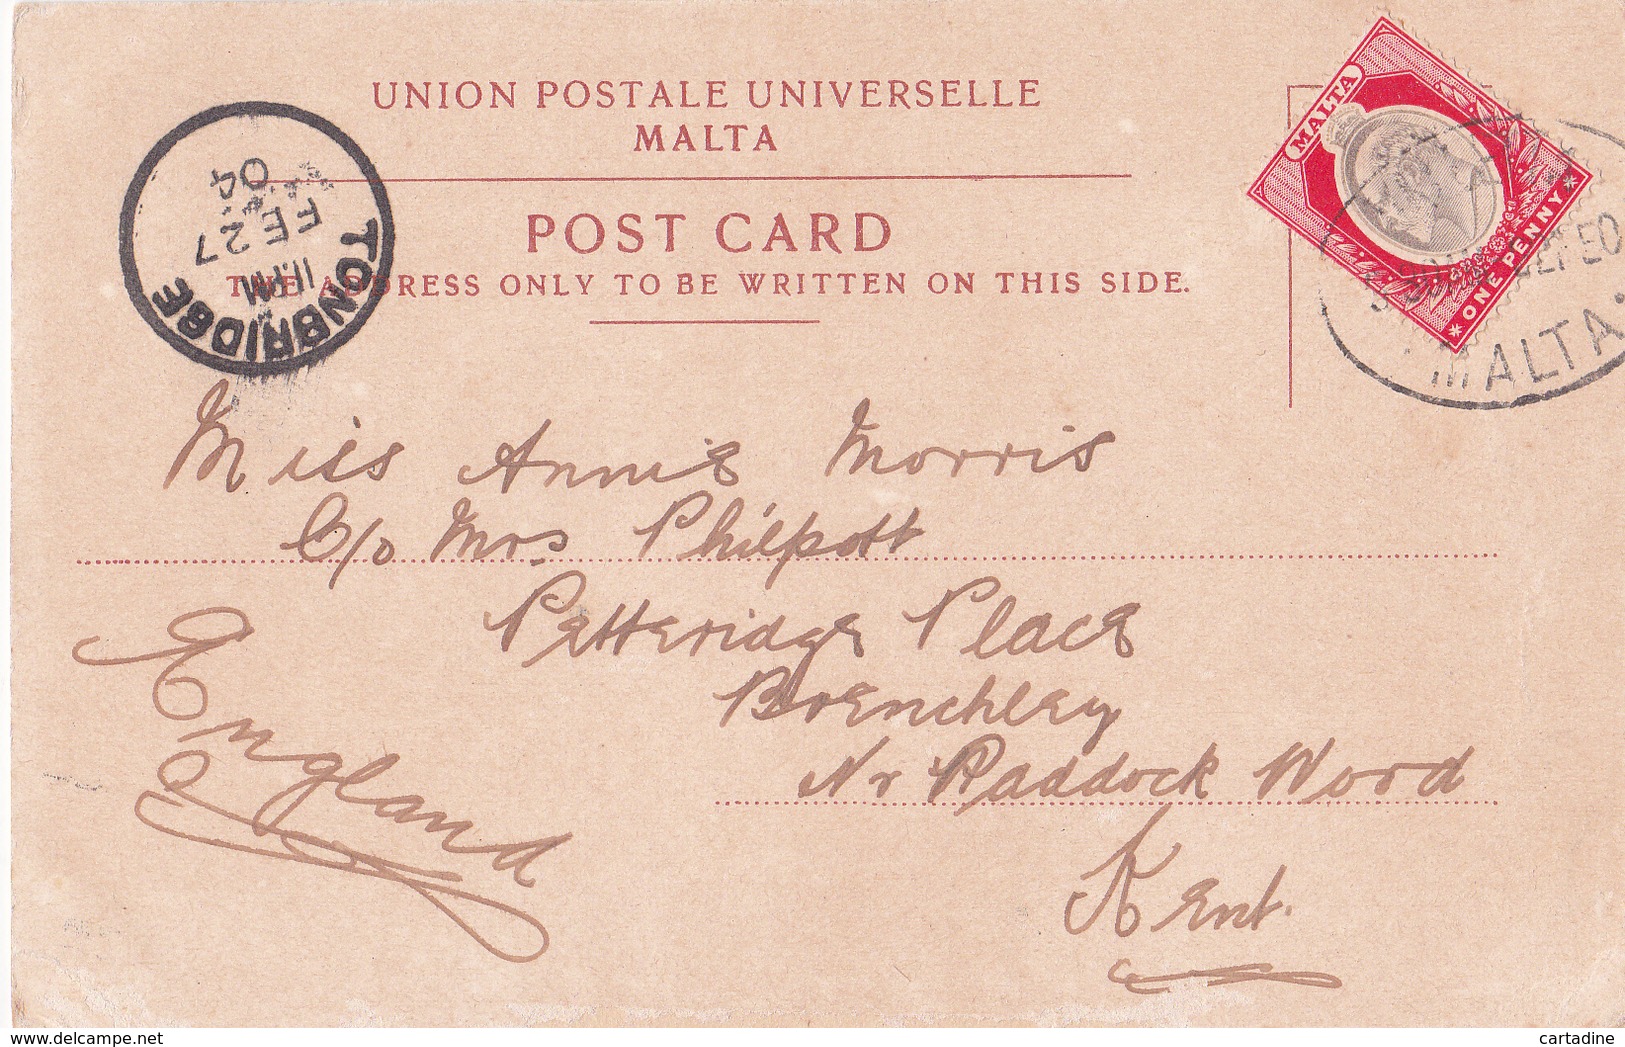 UNION POSTALE UNIVERSELLE
MALTA
POST CARD
THE ADDRESS ONLY TO BE WRITTEN ON THIS SIDE.
TONBRIDGE
11.PM
FE 27
04
MALTA
ONE PENNY
MALTA.
Miss Annie Morris
C/o Mrs Philpott
Petteridge Place
Brenchley
Nr Paddock Word
Kent.
England
www.delcampe.net
cartadine